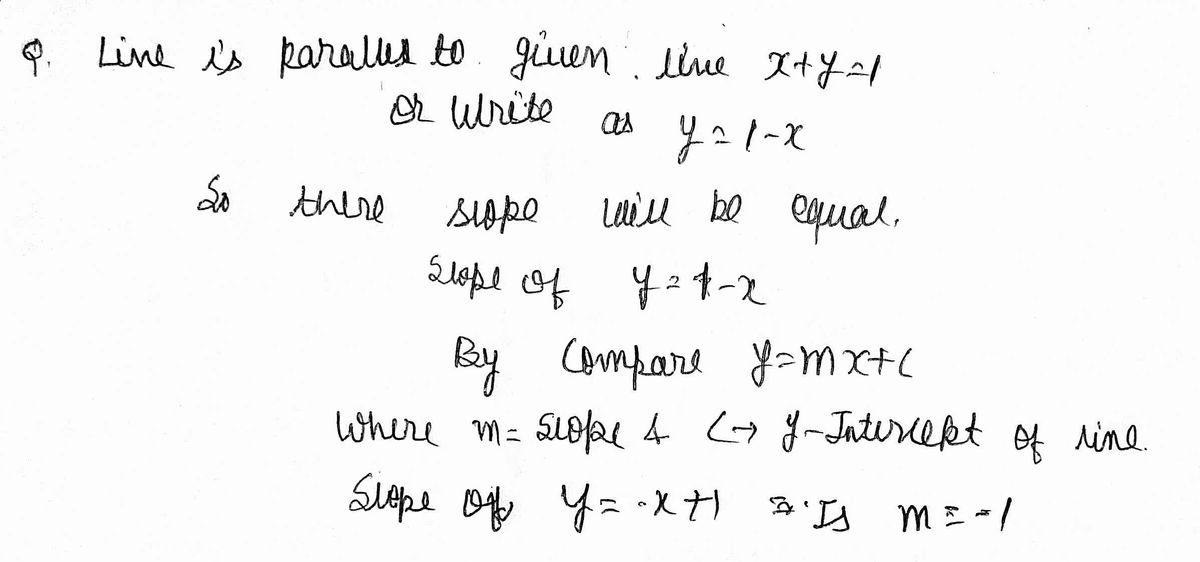 Q. Line is parallel to given line x+y=1
Or Write as y=1-x
So there slope will be equal.
Slope of y=1-x
By Compare y=mx+c
Where m= Slope & C→ y-Intercept of line.
Slope of y=-x+1 Is m=-1